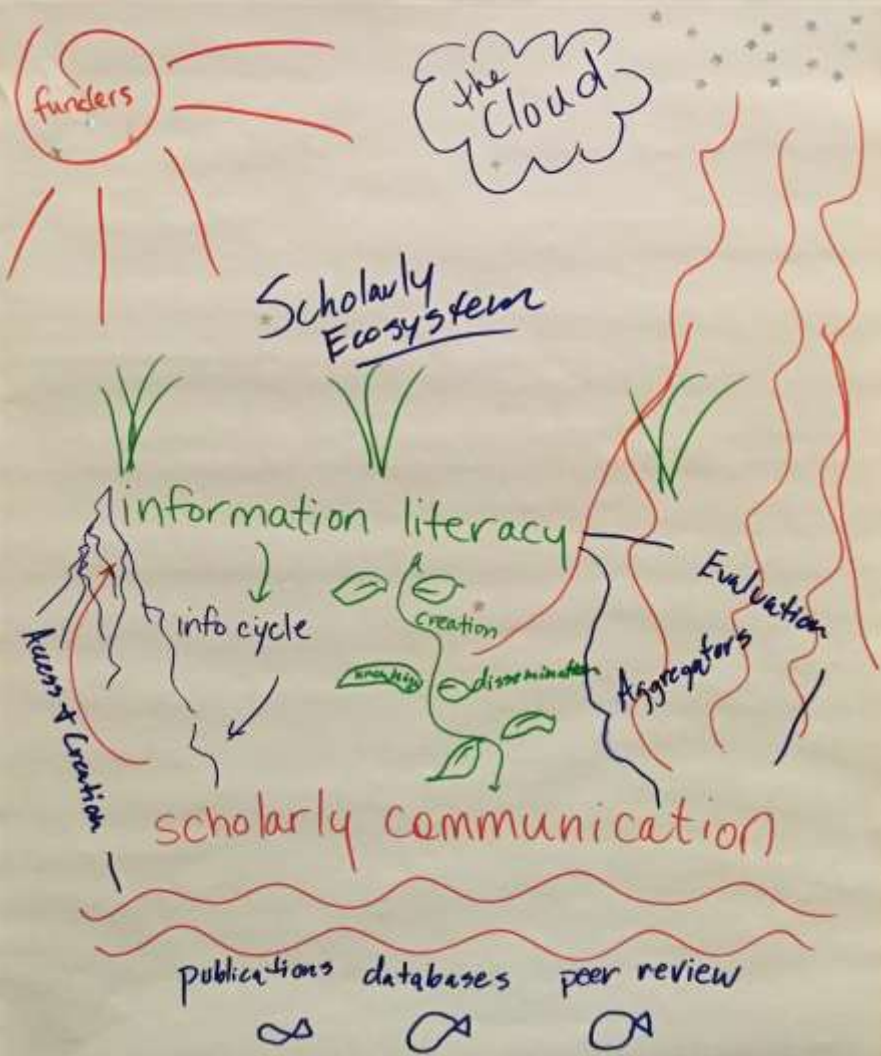 funders
the
Cloud
Scholarly
Ecosystem
information literacy
info cycle
creation
dissemination
Evaluation
Aggregators
Access + Creation
scholarly communication
publications databases peer review